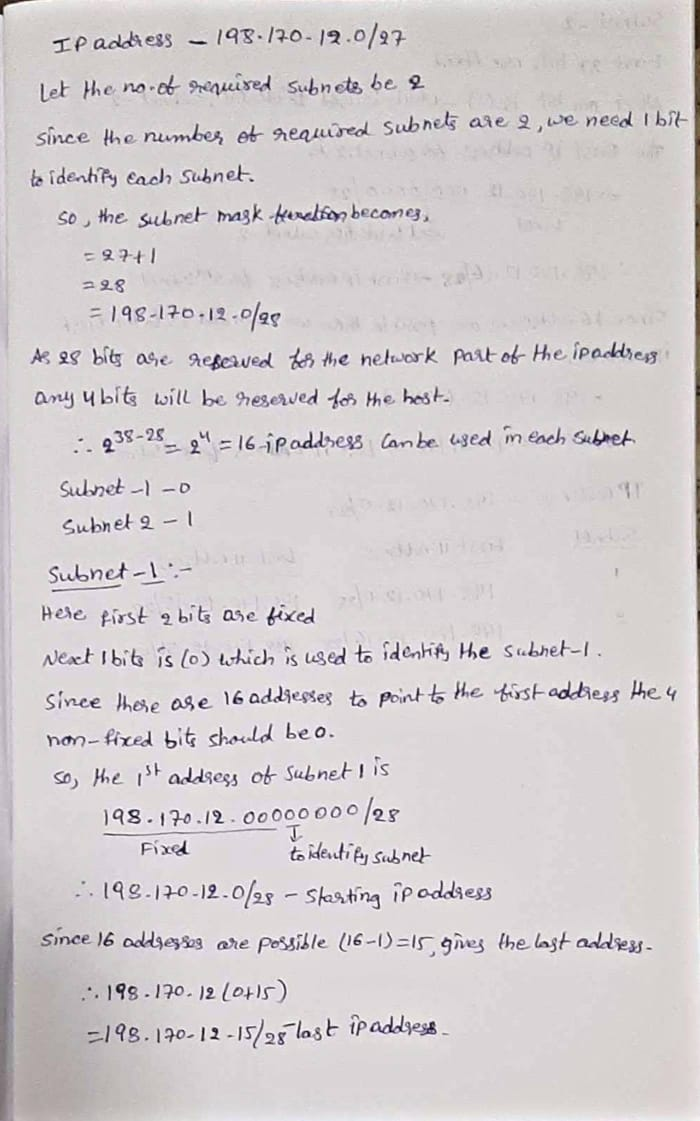 IP address - 198.170.12.0/27
Let the no.of required subnets be 2
since the number of required subnets are 2, we need 1 bit
to identify each subnet.
so, the subnet mask becomes,
= 27+1
= 28
= 198.170.12.0/28
As 28 bits are reserved for the network part of the ipaddress
any 4 bits will be reserved for the host.
∴ 2^38-28 = 2^4 = 16 ip address can be used in each subnet.
Subnet -1 -0
Subnet 2 -1
Subnet -1 :-
Here first 2 bits are fixed
Next 1 bits is (0) which is used to identify the subnet-1.
Since there are 16 addresses to point to the first address the 4
non-fixed bits should be 0.
so, the 1st address of subnet 1 is
198.170.12.00000000/28
Fixed to identify subnet
∴ 198.170.12.0/28 - Starting ip address
Since 16 addresses are possible (16-1)=15, gives the last address.
∴ 198.170.12 (0+15)
= 198.170.12.15/28 - last ip address.